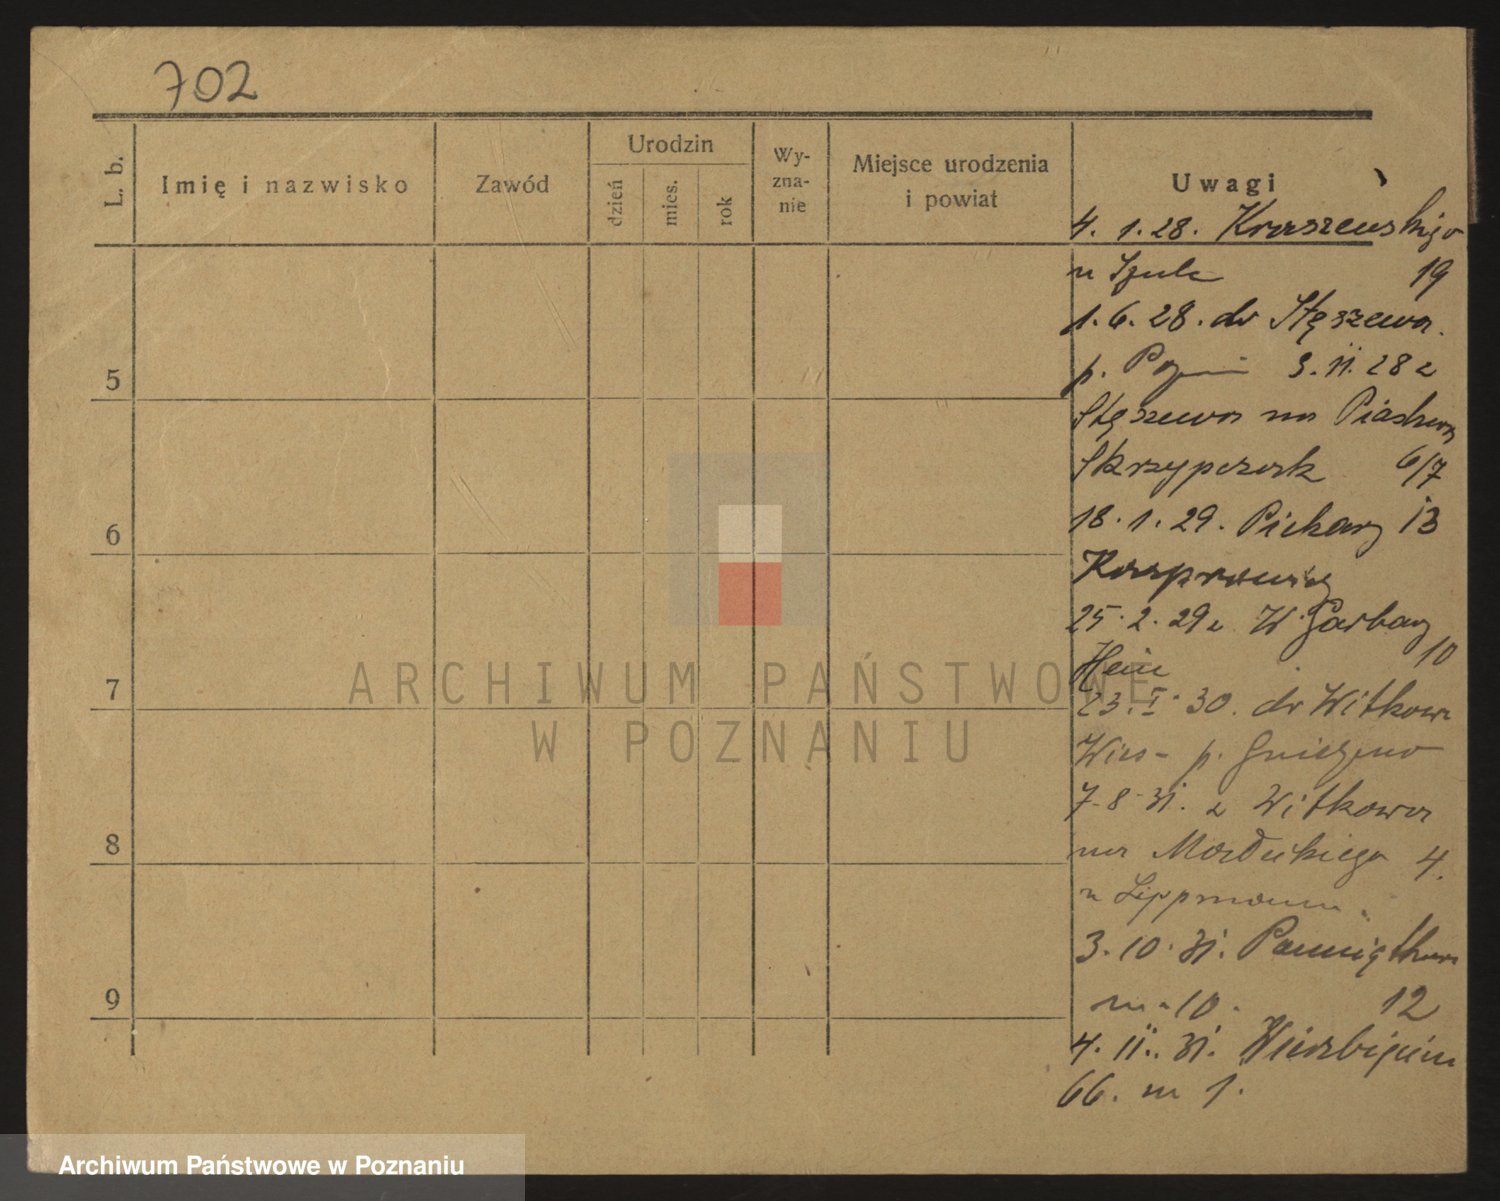 702
L. b.
Imię i nazwisko
Zawód
Urodzin
dzień
mies.
rok
Wy-
zna-
nie
Miejsce urodzenia
i powiat
Uwagi
4. 1. 28. Kraszewskiego
u Szulc 19
1. 6. 28. do Stęszewa.
p. Pozn 3. 11. 28 z
5
Stęszewa na Piaskową
Skrzypczak 6/7
18. 1. 29. Piekary 13
6
Kasprowicz
25. 2. 29 z W Garbary
Hein 10
7
23. I. 30. do Witkowa
Wies - p. Gniezno
7. 8. 31. z Witkowa
8
na Małeckiego 4.
u Lippmann
3. 10. 31. Pamiątkowa
9
m - 10. 12
4. 11. 31. Wierzbięcice
66. m 1.
ARCHIWUM PAŃSTWOWE
W POZNANIU
Archiwum Państwowe w Poznaniu